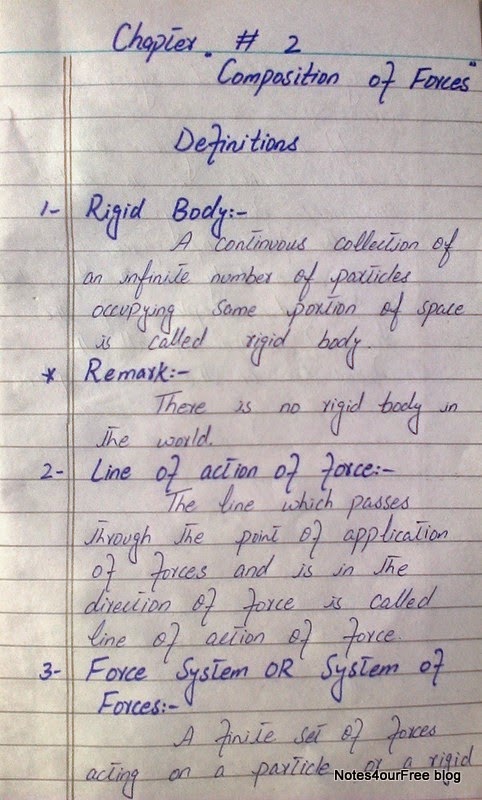 Chapter # 2
"Composition of Forces"
Definitions
1- Rigid Body:-
A continuous collection of
an infinite number of particles
occupying some portion of space
is called rigid body.
* Remark:-
There is no rigid body in
the world.
2- Line of action of force:-
The line which passes
through the point of application
of forces and is in the
direction of force is called
line of action of force.
3- Force System OR System of
Forces:-
A finite set of forces
acting on a particle or a rigid
Notes4ourFree blog